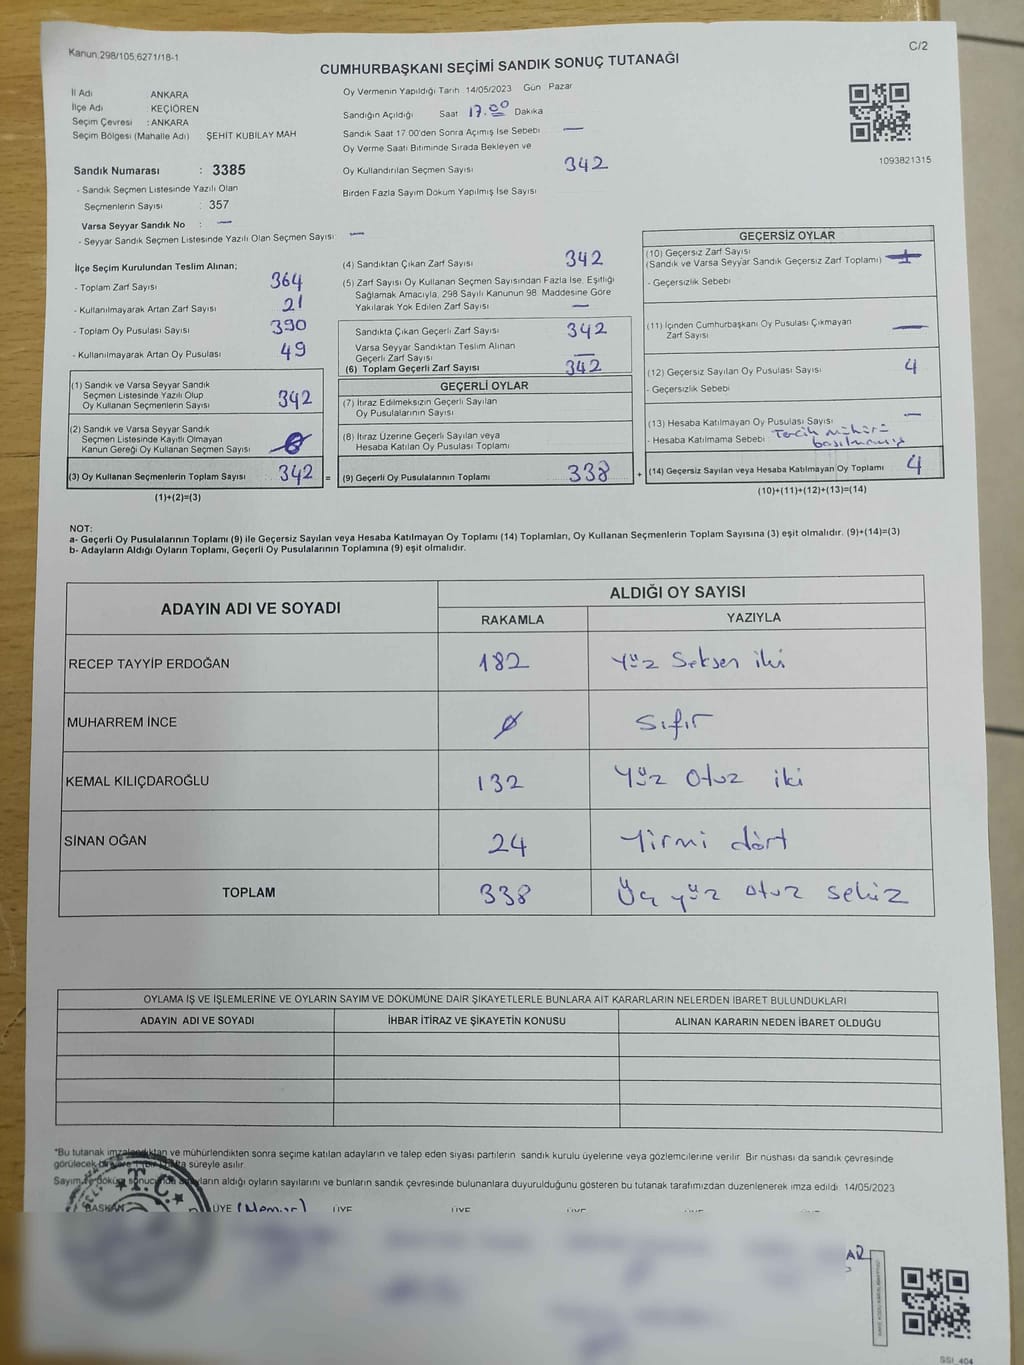 Kanun.298/105,6271/18-1
C/2
CUMHURBAŞKANI SEÇİMİ SANDIK SONUÇ TUTANAĞI
İl Adı ANKARA
İlçe Adı KEÇİÖREN
Seçim Çevresi : ANKARA
Seçim Bölgesi (Mahalle Adı) ŞEHİT KUBİLAY MAH
Oy Vermenin Yapıldığı Tarih 14/05/2023 Gün Pazar
Sandığın Açıldığı Saat 17.00 Dakika
Sandık Saat 17 00'den Sonra Açımış İse Sebebi —
Oy Verme Saati Bitiminde Sırada Bekleyen ve
Oy Kullandırılan Seçmen Sayısı 342
Birden Fazla Sayım Döküm Yapılmış İse Sayısı
1093821315
Sandık Numarası : 3385
- Sandık Seçmen Listesinde Yazılı Olan
Seçmenlerin Sayısı : 357
Varsa Seyyar Sandık No : —
- Seyyar Sandık Seçmen Listesinde Yazılı Olan Seçmen Sayısı: —
İlçe Seçim Kurulundan Teslim Alınan;
- Toplam Zarf Sayısı 364
- Kullanılmayarak Artan Zarf Sayısı 21
- Toplam Oy Pusulası Sayısı 390
- Kullanılmayarak Artan Oy Pusulası 49
(1) Sandık ve Varsa Seyyar Sandık
Seçmen Listesinde Yazılı Olup
Oy Kullanan Seçmenlerin Sayısı 342
(2) Sandık ve Varsa Seyyar Sandık
Seçmen Listesinde Kayıtlı Olmayan
Kanun Gereği Oy Kullanan Seçmen Sayısı
(3) Oy Kullanan Seçmenlerin Toplam Sayısı 342 =
(1)+(2)=(3)
(4) Sandıktan Çıkan Zarf Sayısı 342
(5) Zarf Sayısı Oy Kullanan Seçmen Sayısından Fazla İse, Eşitliği
Sağlamak Amacıyla, 298 Sayılı Kanunun 98. Maddesine Göre
Yakılarak Yok Edilen Zarf Sayısı —
Sandıkta Çıkan Geçerli Zarf Sayısı 342
Varsa Seyyar Sandıktan Teslim Alınan
Geçerli Zarf Sayısı —
(6) Toplam Geçerli Zarf Sayısı 342
GEÇERLİ OYLAR
(7) İtiraz Edilmeksizin Geçerli Sayılan
Oy Pusulalarının Sayısı
(8) İtiraz Üzerine Geçerli Sayılan veya
Hesaba Katılan Oy Pusulası Toplamı
(9) Geçerli Oy Pusulalarının Toplamı 338 +
GEÇERSİZ OYLAR
(10) Geçersiz Zarf Sayısı
(Sandık ve Varsa Seyyar Sandık Geçersiz Zarf Toplamı)
- Geçersizlik Sebebi
(11) İçinden Cumhurbaşkanı Oy Pusulası Çıkmayan
Zarf Sayısı —
(12) Geçersiz Sayılan Oy Pusulası Sayısı 4
- Geçersizlik Sebebi
(13) Hesaba Katılmayan Oy Pusulası Sayısı —
- Hesaba Katılmama Sebebi Tercih mührü
basılmamış
(14) Geçersiz Sayılan veya Hesaba Katılmayan Oy Toplamı 4
(10)+(11)+(12)+(13)=(14)
NOT:
a- Geçerli Oy Pusulalarının Toplamı (9) ile Geçersiz Sayılan veya Hesaba Katılmayan Oy Toplamı (14) Toplamları, Oy Kullanan Seçmenlerin Toplam Sayısına (3) eşit olmalıdır. (9)+(14)=(3)
b- Adayların Aldığı Oyların Toplamı, Geçerli Oy Pusulalarının Toplamına (9) eşit olmalıdır.
ADAYIN ADI VE SOYADI
ALDIĞI OY SAYISI
RAKAMLA YAZIYLA
RECEP TAYYİP ERDOĞAN 182 Yüz Seksen iki
MUHARREM İNCE 0 Sıfır
KEMAL KILIÇDAROĞLU 132 Yüz Otuz iki
SİNAN OĞAN 24 Yirmi dört
TOPLAM 338 Üç yüz otuz sekiz
OYLAMA İŞ VE İŞLEMLERİNE VE OYLARIN SAYIM VE DÖKÜMÜNE DAİR ŞİKAYETLERLE BUNLARA AİT KARARLARIN NELERDEN İBARET BULUNDUKLARI
ADAYIN ADI VE SOYADI İHBAR İTİRAZ VE ŞİKAYETİN KONUSU ALINAN KARARIN NEDEN İBARET OLDUĞU
*Bu tutanak imzalandıktan ve mühürlendikten sonra seçime katılan adayların ve talep eden siyasi partilerin sandık kurulu üyelerine veya gözlemcilerine verilir. Bir nüshası da sandık çevresinde
görülecek bir yere 1 (bir) hafta süreyle asılır.
Sayım ve döküm sonucunda adayların aldığı oyların sayılarını ve bunların sandık çevresinde bulunanlara duyurulduğunu gösteren bu tutanak tarafımızdan düzenlenerek imza edildi. 14/05/2023
T.C.
BAŞKAN ÜYE (Memur) ÜYE ÜYE ÜYE
AR
SSİ_404